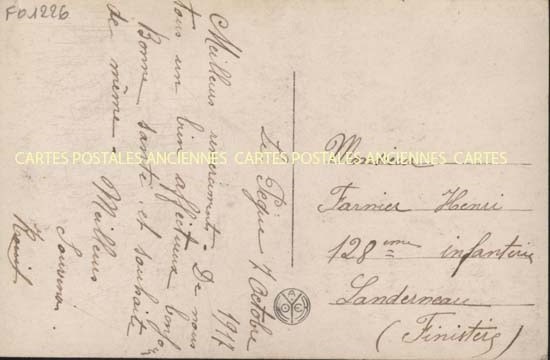 F01226
Le Pègue 7 Octobre
1917
Meilleurs remerciements. De nous
tous un bien affectueux bonjour
Bonne santé et souhaite
de même. Meilleurs
Souvenirs.
CARTES POSTALES ANCIENNES CARTES POSTALES ANCIENNES CARTES
Monsieur
Farnier Henri
128ème infanterie
Landerneau
(Finistère)